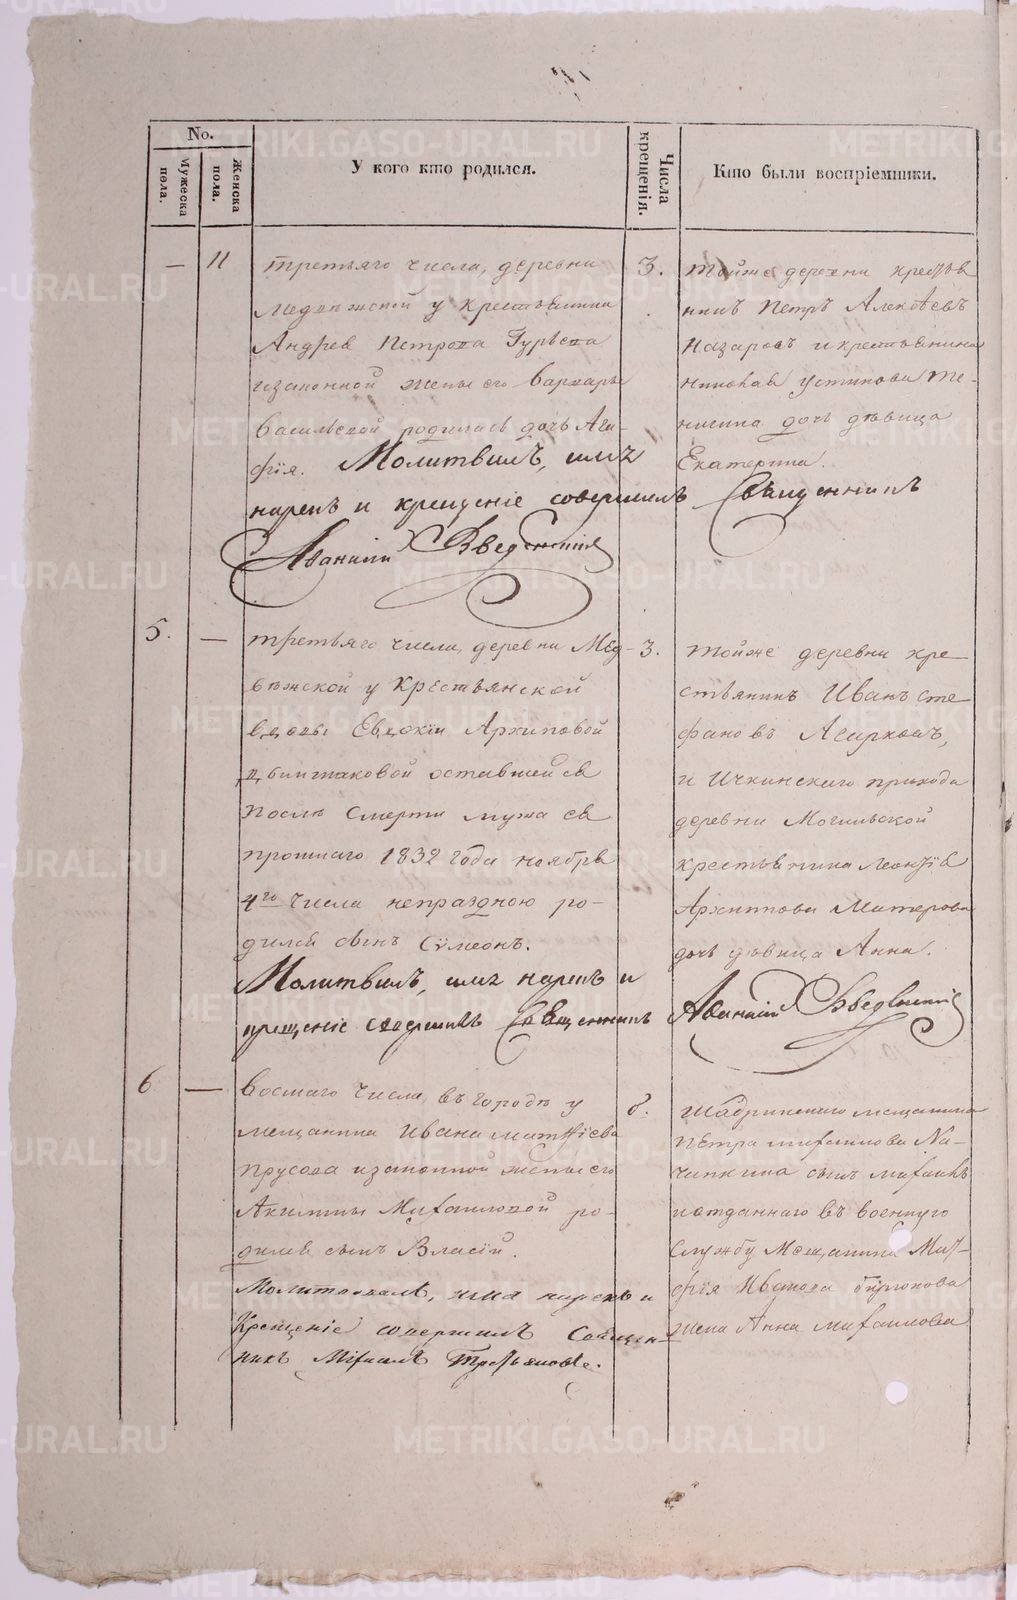 No.
Мужеска пола.
Женска пола.
У кого кто родился.
Числа крещенія.
Кто были воспріемники.
— 11 третьяго числа, деревни
Медвѣжской у крестьянина
Андрея Петрова Гурьева
и законной жены его Варвары
Васильевой родилась дочь Ага-
фія. Молитвилъ, имя
нарекъ и крещеніе совершилъ Священникъ
Аѳанасій Введенскій
3.
тойже деревни крестья
нинъ Петръ Алексѣевъ
Назаровъ и крестьянина
Николая Устинова
дочь дѣвица
Екатерина.
5. — третьяго числа, деревни Мед-
вѣжской у Крестьянской
вдовы Евдокіи Архиповой
оставшейся
послѣ смерти мужа ея
прошлаго 1832 года ноября
4го числа непраздною ро-
дился сынъ Сѵмеонъ.
Молитвилъ, имя нарекъ и
крещеніе совершилъ Священникъ
Аѳанасій Введенскій
3.
тойже деревни кре-
стьянинъ Иванъ Сте
фановъ
и Ичкинскаго прихода
деревни Могильской
крестьянина Леонтія
Архипова
дочь дѣвица Анна.
6 — Восмаго числа, въ городѣ у
мещанина Ивана Матѳіева
Прусова и законной жены его
Акилины Михайловой ро-
дился сынъ Власій.
Молитвовалъ, имя нарекъ и
Крещеніе совершилъ Священ-
никъ Михаилъ
8.
Шадринскаго мещанина
Петра Михайлова
сынъ Михаилъ
и отданнаго въ военную
службу Мещанина Мат-
фія Иванова Бирюкова
жена Анна Михайлова
METRIKI.GASO-URAL.RU